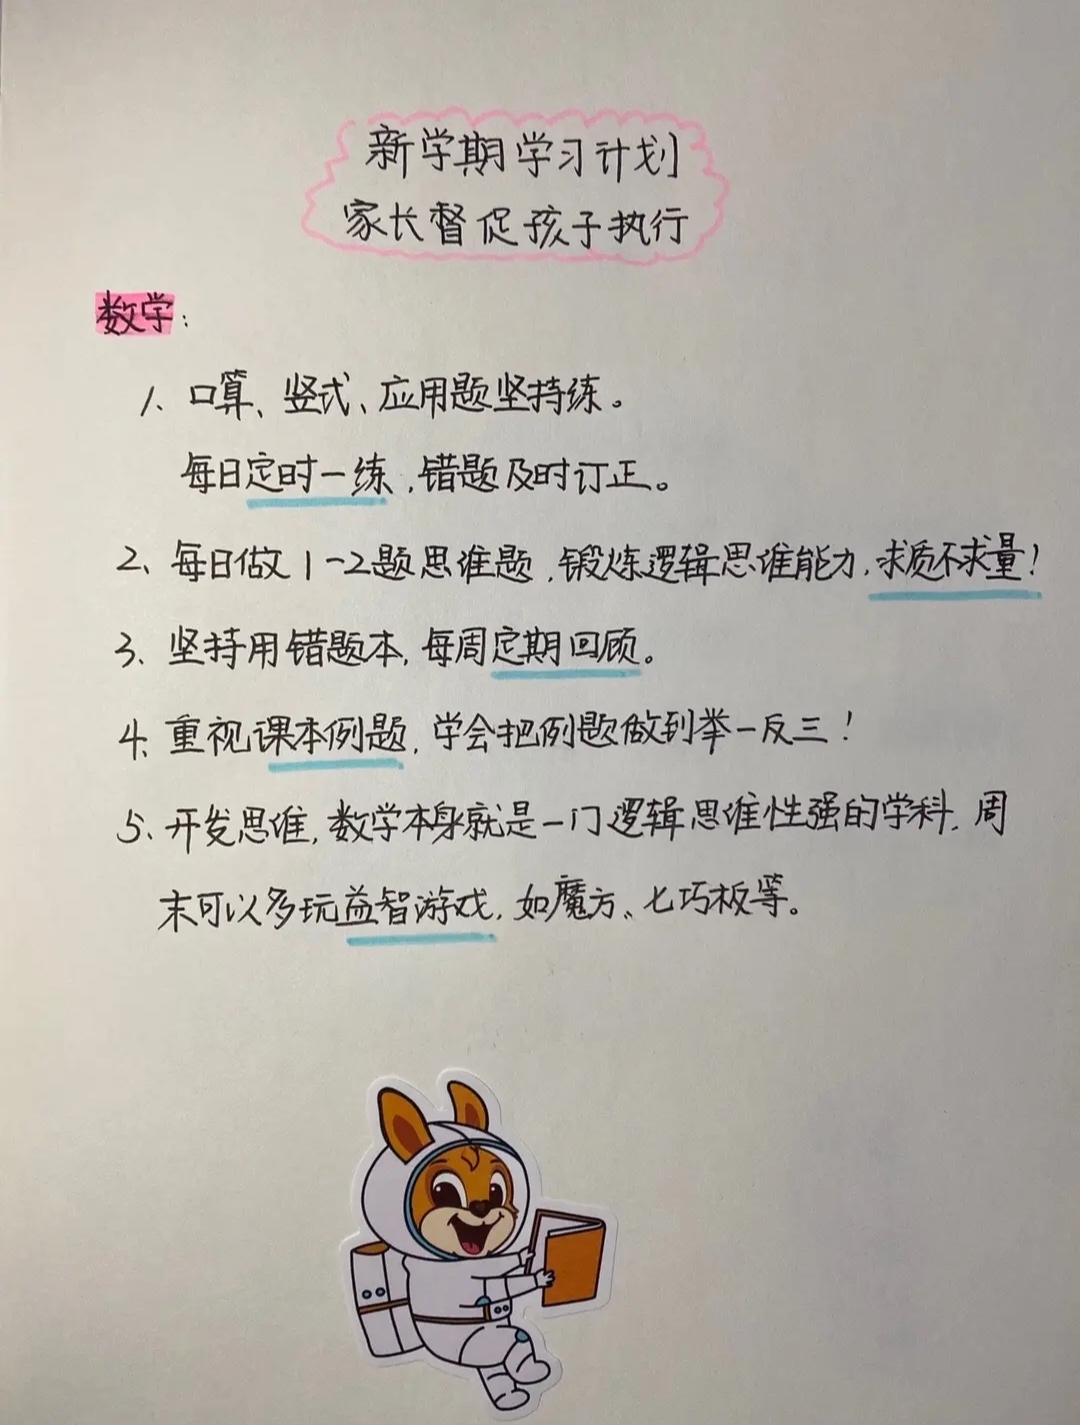 新学期学习计划
家长督促孩子执行
数学：
1、口算、竖式、应用题坚持练。
每日定时一练，错题及时订正。
2、每日做1-2题思维题，锻炼逻辑思维能力，求质不求量！
3、坚持用错题本，每周定期回顾。
4、重视课本例题，学会把例题做到举一反三！
5、开发思维，数学本身就是一门逻辑思维性强的学科，周
末可以多玩益智游戏，如魔方、七巧板等。